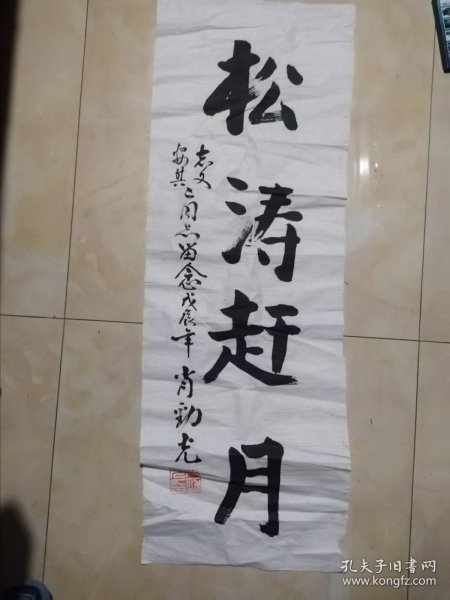 松涛赶月
志文
安其
二同志留念戊辰年 肖劲光
孔夫子旧书网
www.kongfz.com